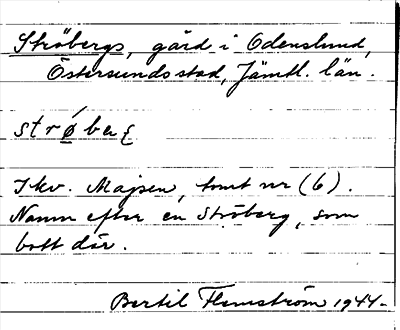 Ströbergs, gård i Odenslund,
Östersunds stad, Jämtl. län.
strø̄́bærj
I kv. Majsen, tomt nr (6).
Namn efter en Ströberg, som
bott där.
Bertil Flemström 1944.